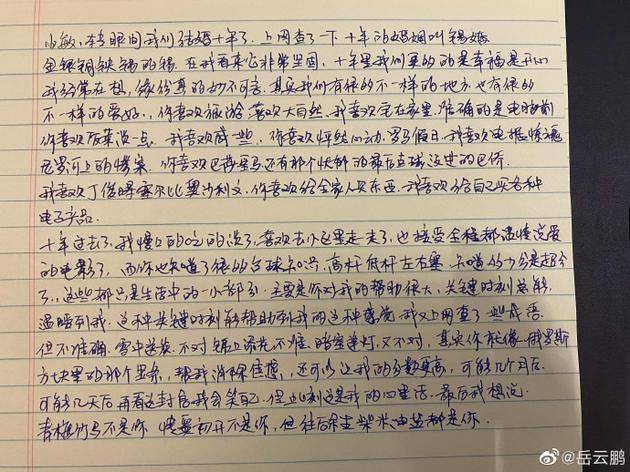 小敏，转眼间我们结婚十年了，上网查了一下十年的婚姻叫锡婚
金银铜铁锡的锡，在我看来它非常坚固，十年里我们更多的是幸福是开心
我经常在想，缘份真的妙不可言，其实我们有很多不一样的地方，也有很多
不一样的爱好，你喜欢旅游，喜欢大自然，我喜欢宅在家里，准确的是电脑前
你喜欢饭菜淡一点，我喜欢咸一些，你喜欢怦然心动，罗马假日，我喜欢电锯惊魂
尼罗河上的惨案，你喜欢巴蒂罗马还有那个快船的最后左球
我喜欢丁俊晖塞尔比奥沙利文，你喜欢给全家人买东西，我喜欢给自己买各种
电子产品。
十年过去了，我慢慢的吃的淡了，喜欢去小区里走一走了，也接受全程都谈情说爱
的电影了，而你也知道了很多台球知识，高杆低杆左右塞，知道的少会是超分
了，这些都只是生活中的一小部分，主要是你对我的帮助很大，关键时刻总能
温暖到我，这种关键时刻能帮助到我的这种感觉，我又上网查了一些成语
但不准确，雪中送炭，不对，锦上添花不准，暗室逢灯，又不对，其实你就像俄罗斯
方块里的那个竖条，帮我消除焦虑，还可以让我的分数更高，可能几个月后
可能几天后再看这封信我会笑自己，但此刻这是我的心里话，最后我想说，
青梅竹马不是你，情窦初开不是你，但往后余生柴米油盐都是你。
@岳云鹏